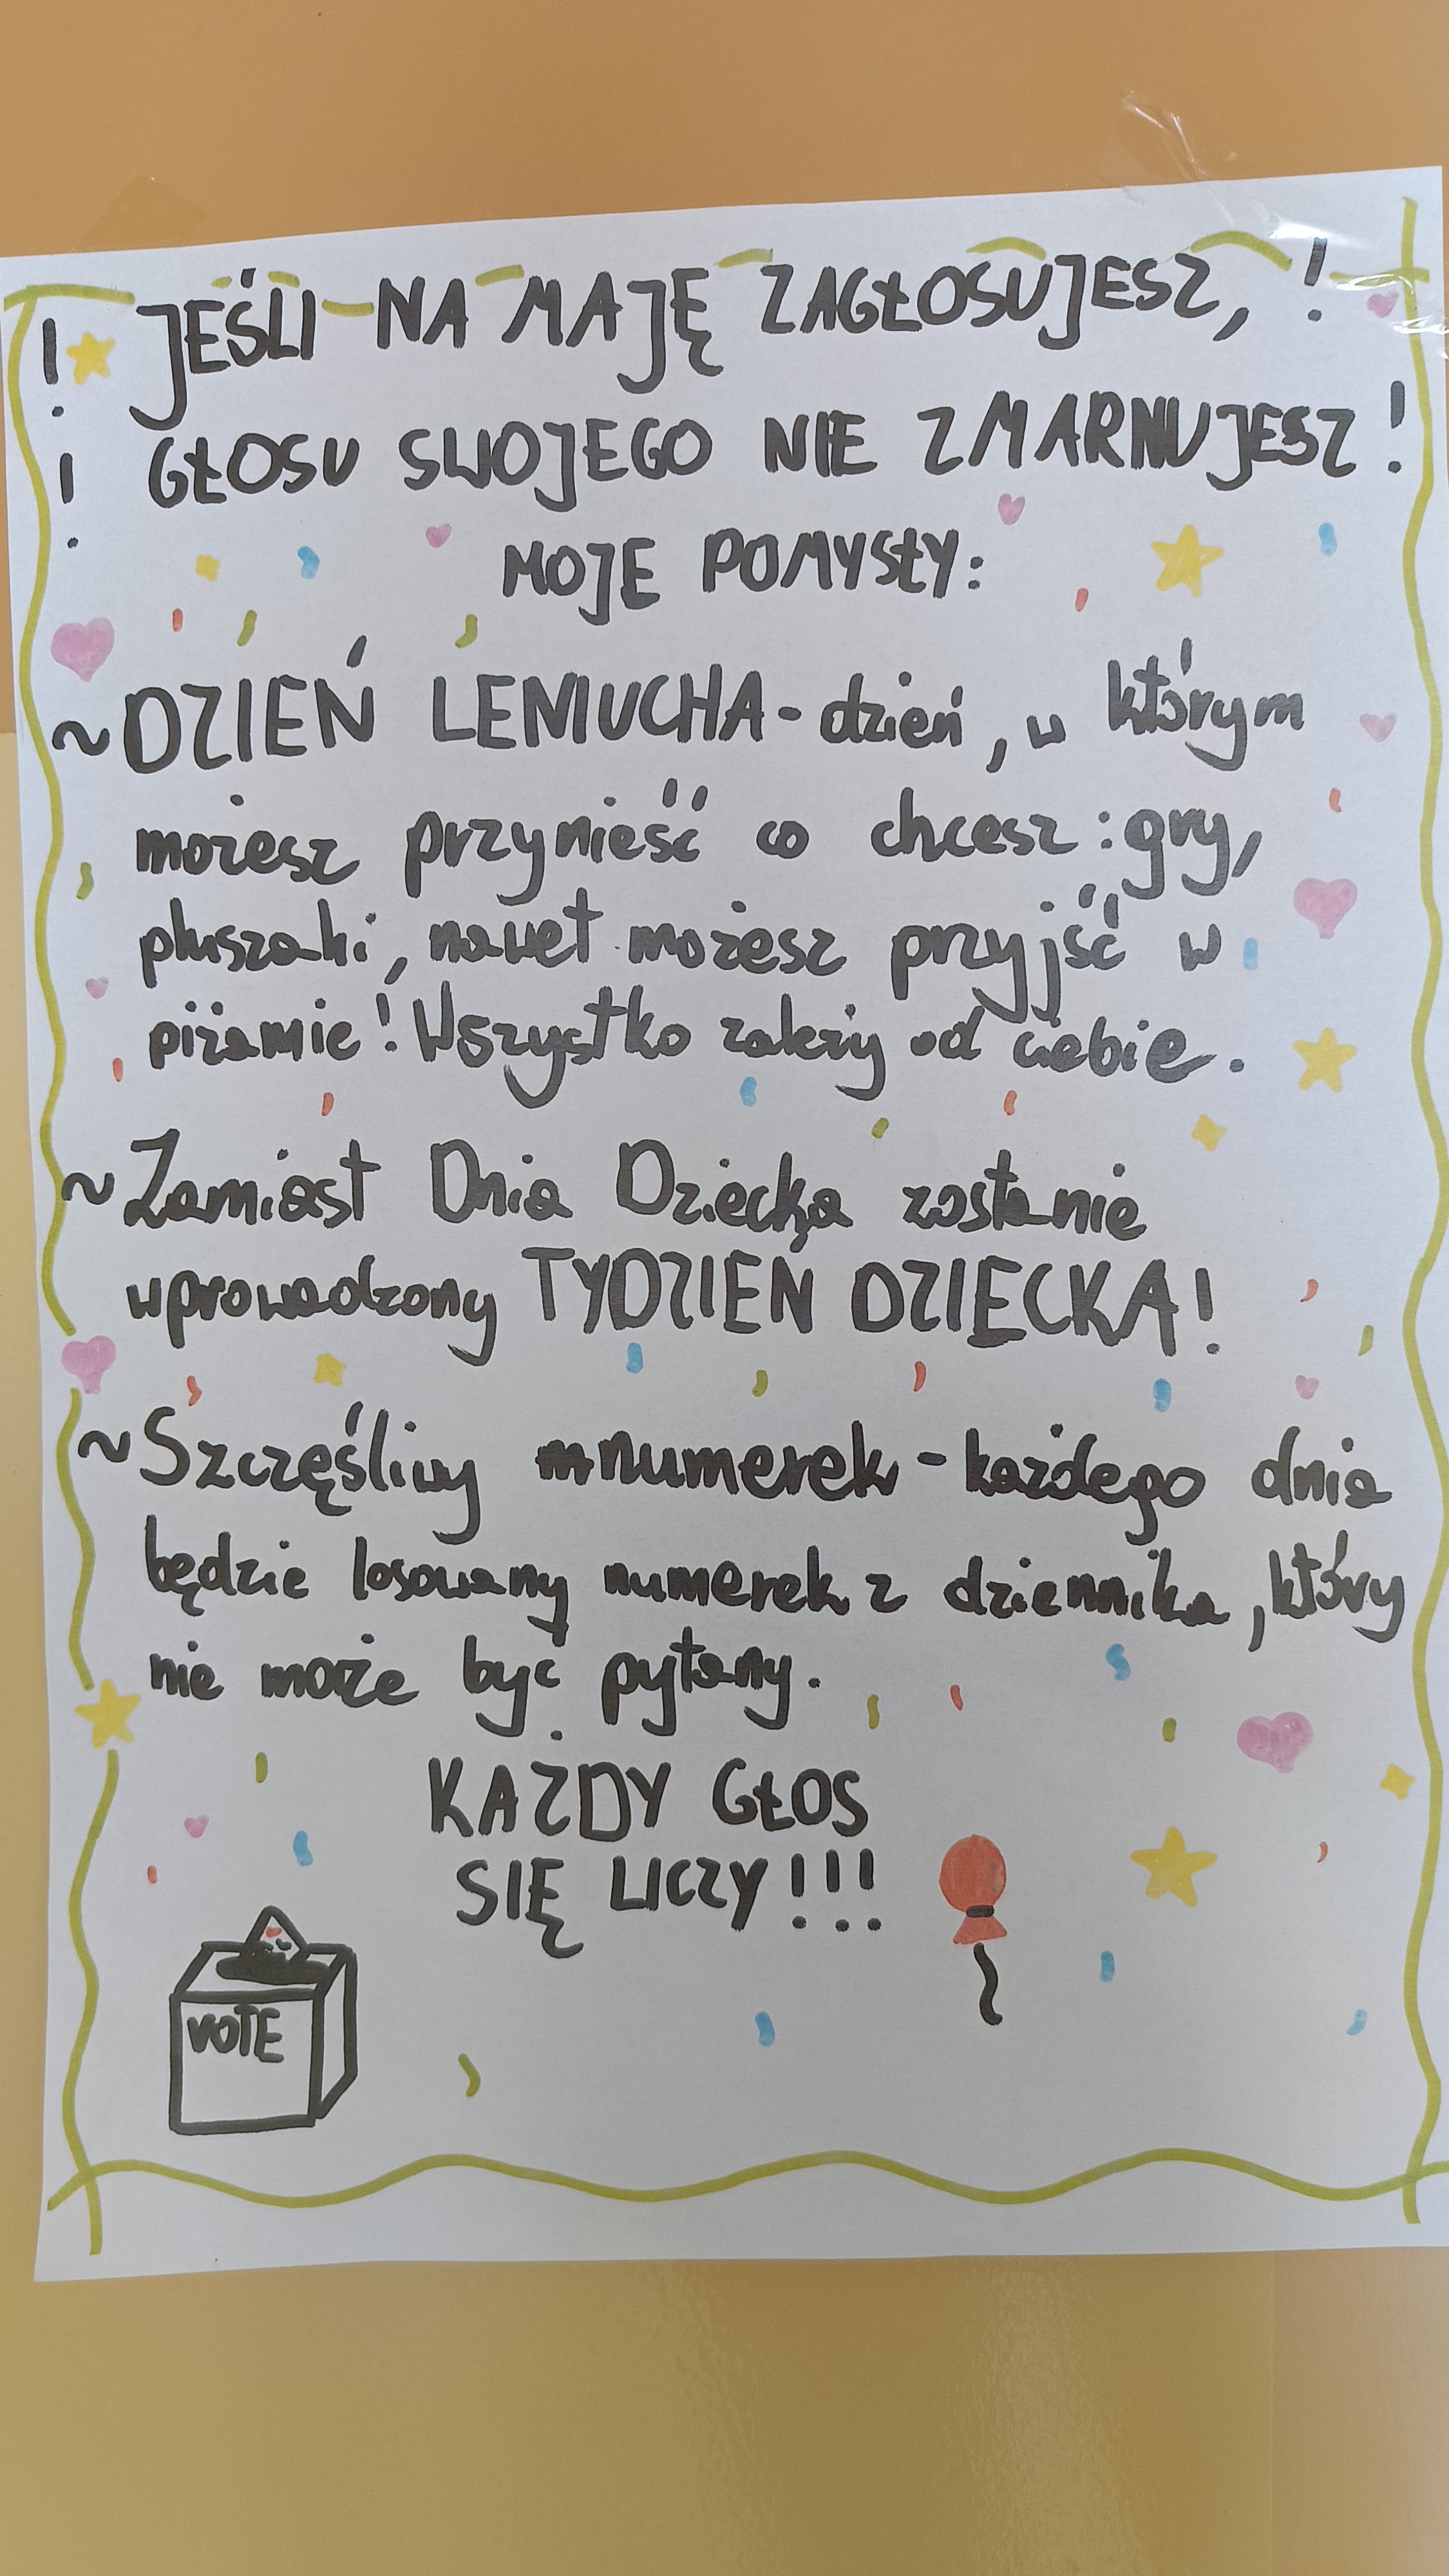 ! JEŚLI NA MAJĘ ZAGŁOSUJESZ, !
! GŁOSU SWOJEGO NIE ZMARNUJESZ!
MOJE POMYSŁY:
~DZIEŃ LENIUCHA - dzień, w którym
możesz przynieść co chcesz: gry,
pluszaki, nawet możesz przyjść w
piżamie! Wszystko zależy od ciebie.
~Zamiast Dnia Dziecka zostanie
wprowadzony TYDZIEŃ DZIECKA!
~Szczęśliwy numerek - każdego dnia
będzie losowany numerek z dziennika, który
nie może być pytany.
KAŻDY GŁOS
SIĘ LICZY!!!
VOTE